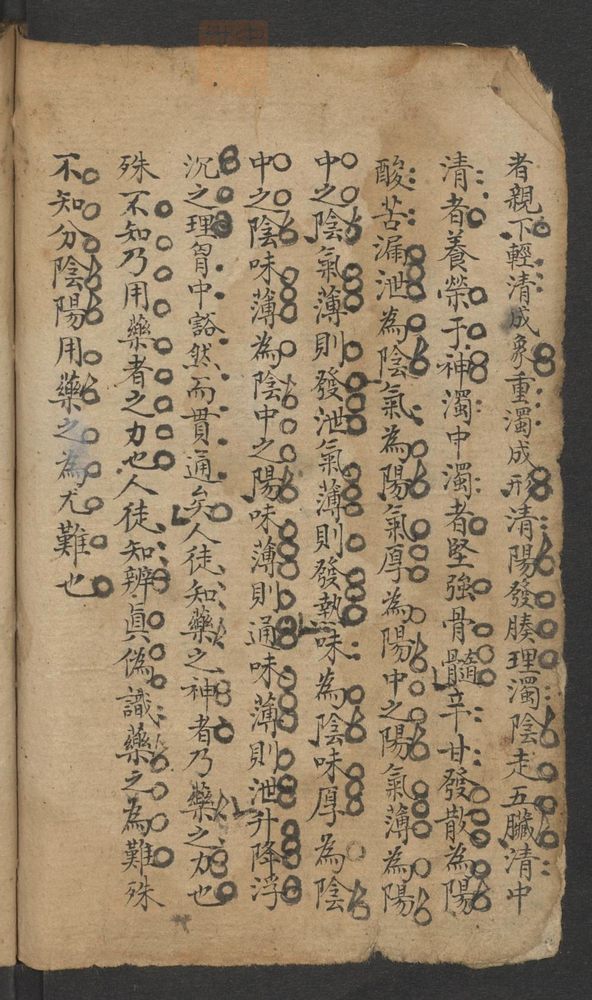 者親下輕清成象重濁成形清陽發腠理濁陰走五臟清中
清者養榮于神濁中濁者堅強骨髓辛甘發散為陽
酸苦漏泄為陰氣為陽氣厚為陽中之陽氣薄為陽
中之陰氣薄則發泄氣薄則發熱味為陰味厚為陰
中之陰味薄為陰中之陽味薄則通味薄則泄升降浮
沉之理胷中豁然而貫通矣人徒知藥之神者乃藥之力也
殊不知乃用藥者之力也人徒知辨眞偽識藥之為難殊
不知分陰陽用藥之為尤難也